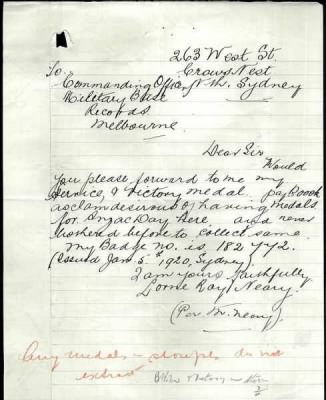 263 West St.
Crows Nest
Nth. Sydney
To
Commanding Officer
Military Base
Records
Melbourne
Dear Sir
Would
you please forward to me my
service, & Victory medal
as I am desirous of having medals
for Anzac Day Here and never
bothered before to collect same
My Badge no. is 182442.
(Issued Jan. 5th 1920, Sydney)
I am yours faithfully
Lorne Roy Neary.
(Per M. Neary)
Any medals